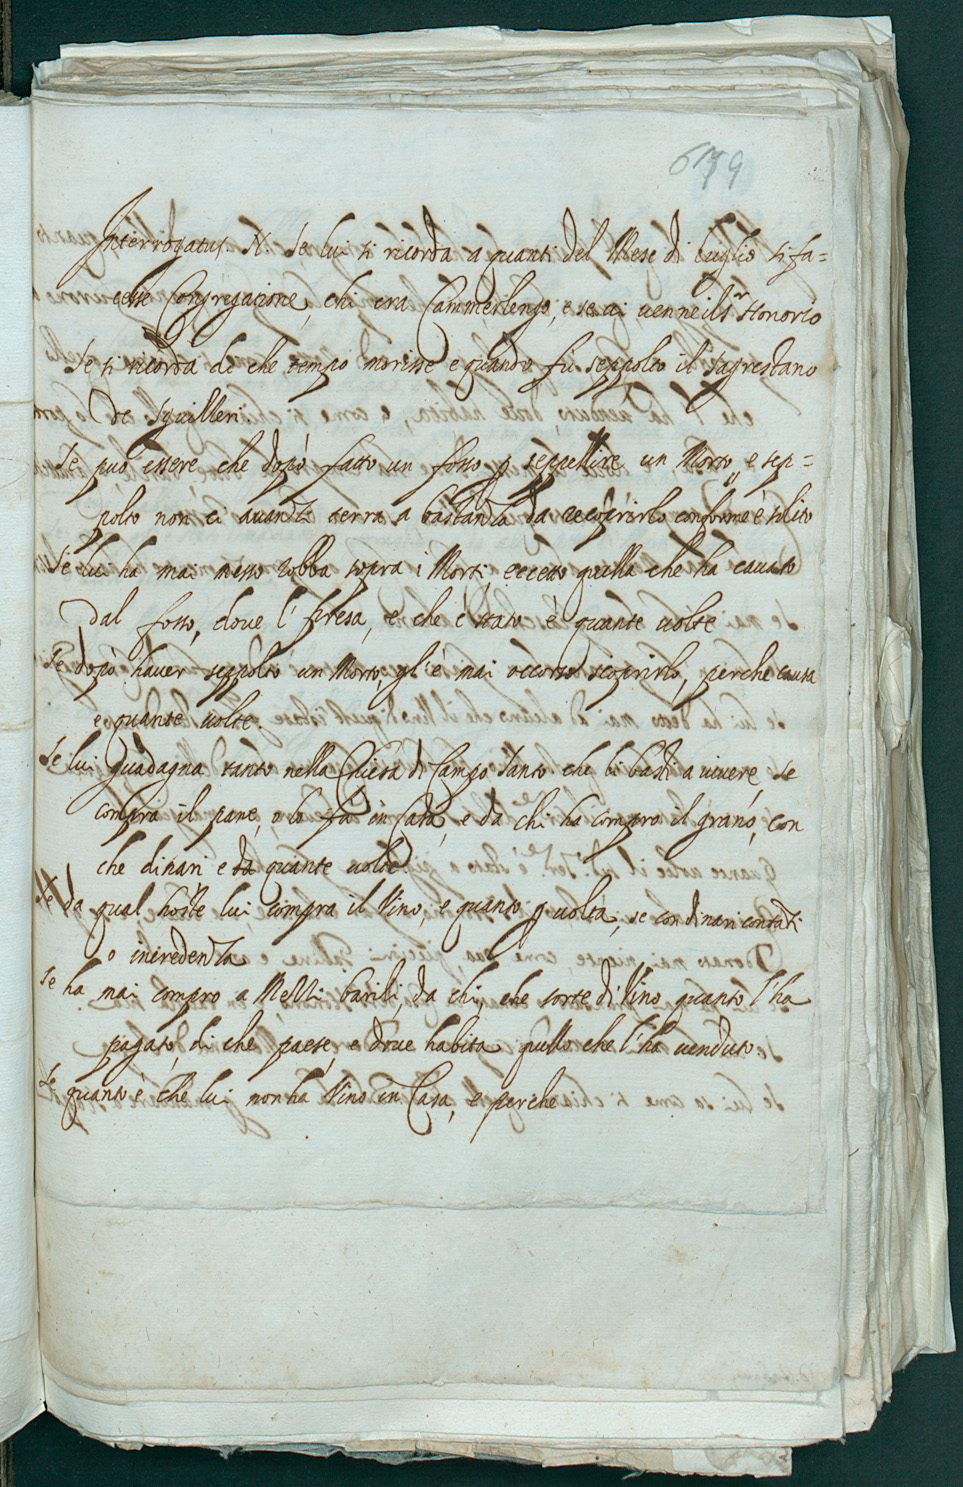 679
Interrogatus N. Se lui si ricorda a quanti del Mese di luglio si fa=
cesse Congregatione, chi era Cammerlengo, e se vi venne il Sr Honorio
Se si ricorda di che tempo morisse e quando fu seppolto il sagrestano
de Sguilleri
Se può essere che dopò fatto un fosso p seppellire un Morto, e sep=
polto non ci avanzi terra a bastanza da recoprirlo conforme è solito
Se lui ha mai messo robba sopra i Morti, eccetto quella che ha cavato
dal fosso, dove l'ha presa, e che è stato è quante volte
Se dopò haver seppolto un Morto, gl'è mai occorso scoprirlo, perche causa
e quante volte.
Se lui guadagna tanto nella Chiesa di Campo Santo che li basti a vivere, se
compra il pane, o lo fà in Casa, e da chi ha compro il grano, con
che dinari e da quante volte.
Se da qual hoste lui compra il Vino, e quanto p volta, se con dinari contati
o in credenza
Se ha mai compro a Mezzi barili, da chi, che sorte di Vino, quanto l'ha
pagato, di che paese, e dove habita quello che l'ha venduto
Se quanto è che lui non ha Vino in Casa, e perche